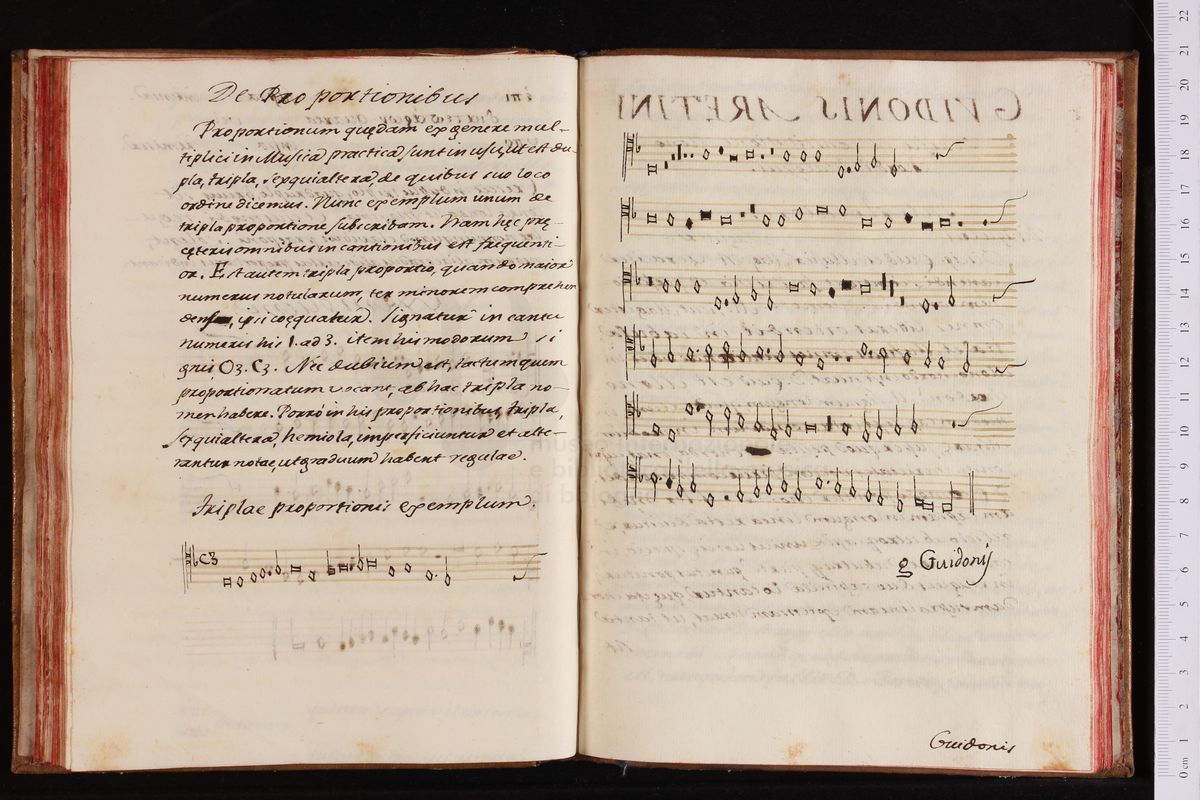 De Proportionibus
Proportionum quędam ex genere mul-
tiplici in Musica practica sunt in usu, ut est du-
pla, tripla, sexquialtera, de quibus suo loco
ordine dicemus. Nunc exemplum unum de
tripla proportione subscribam. Nam hęc prę-
cęteris omnibus in cantionibus est frequenti-
or. Est autem tripla proportio, quando maior
numerus notularum, ter minorem comprehen
ipsi coęquatur. Signatur in cantu
numeris his 1. ad 3. Item his modorum si
gnis O3. C3. Nec dubium est, tactum quem
proportionatum vocant, ab hac tripla no-
men habere. Porro in his proportionibus, tripla,
sexquialtera, hemiola, imperficiuntur et alte-
rantur notae, ut graduum habent regulae.
Triplae proportionis exemplum.
C3
g Guidonis
Guidonis
22
21
20
19
18
17
16
15
14
13
12
11
10
9
8
7
6
5
4
3
2
1
0 cm